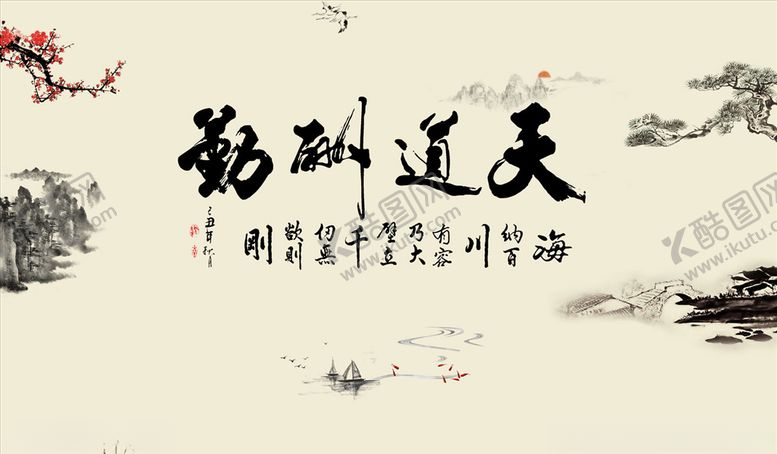 天道酬勤
海納百川有容乃大壁立千仞無欲則剛
己丑年秋月
酷图网
www.ikutu.com